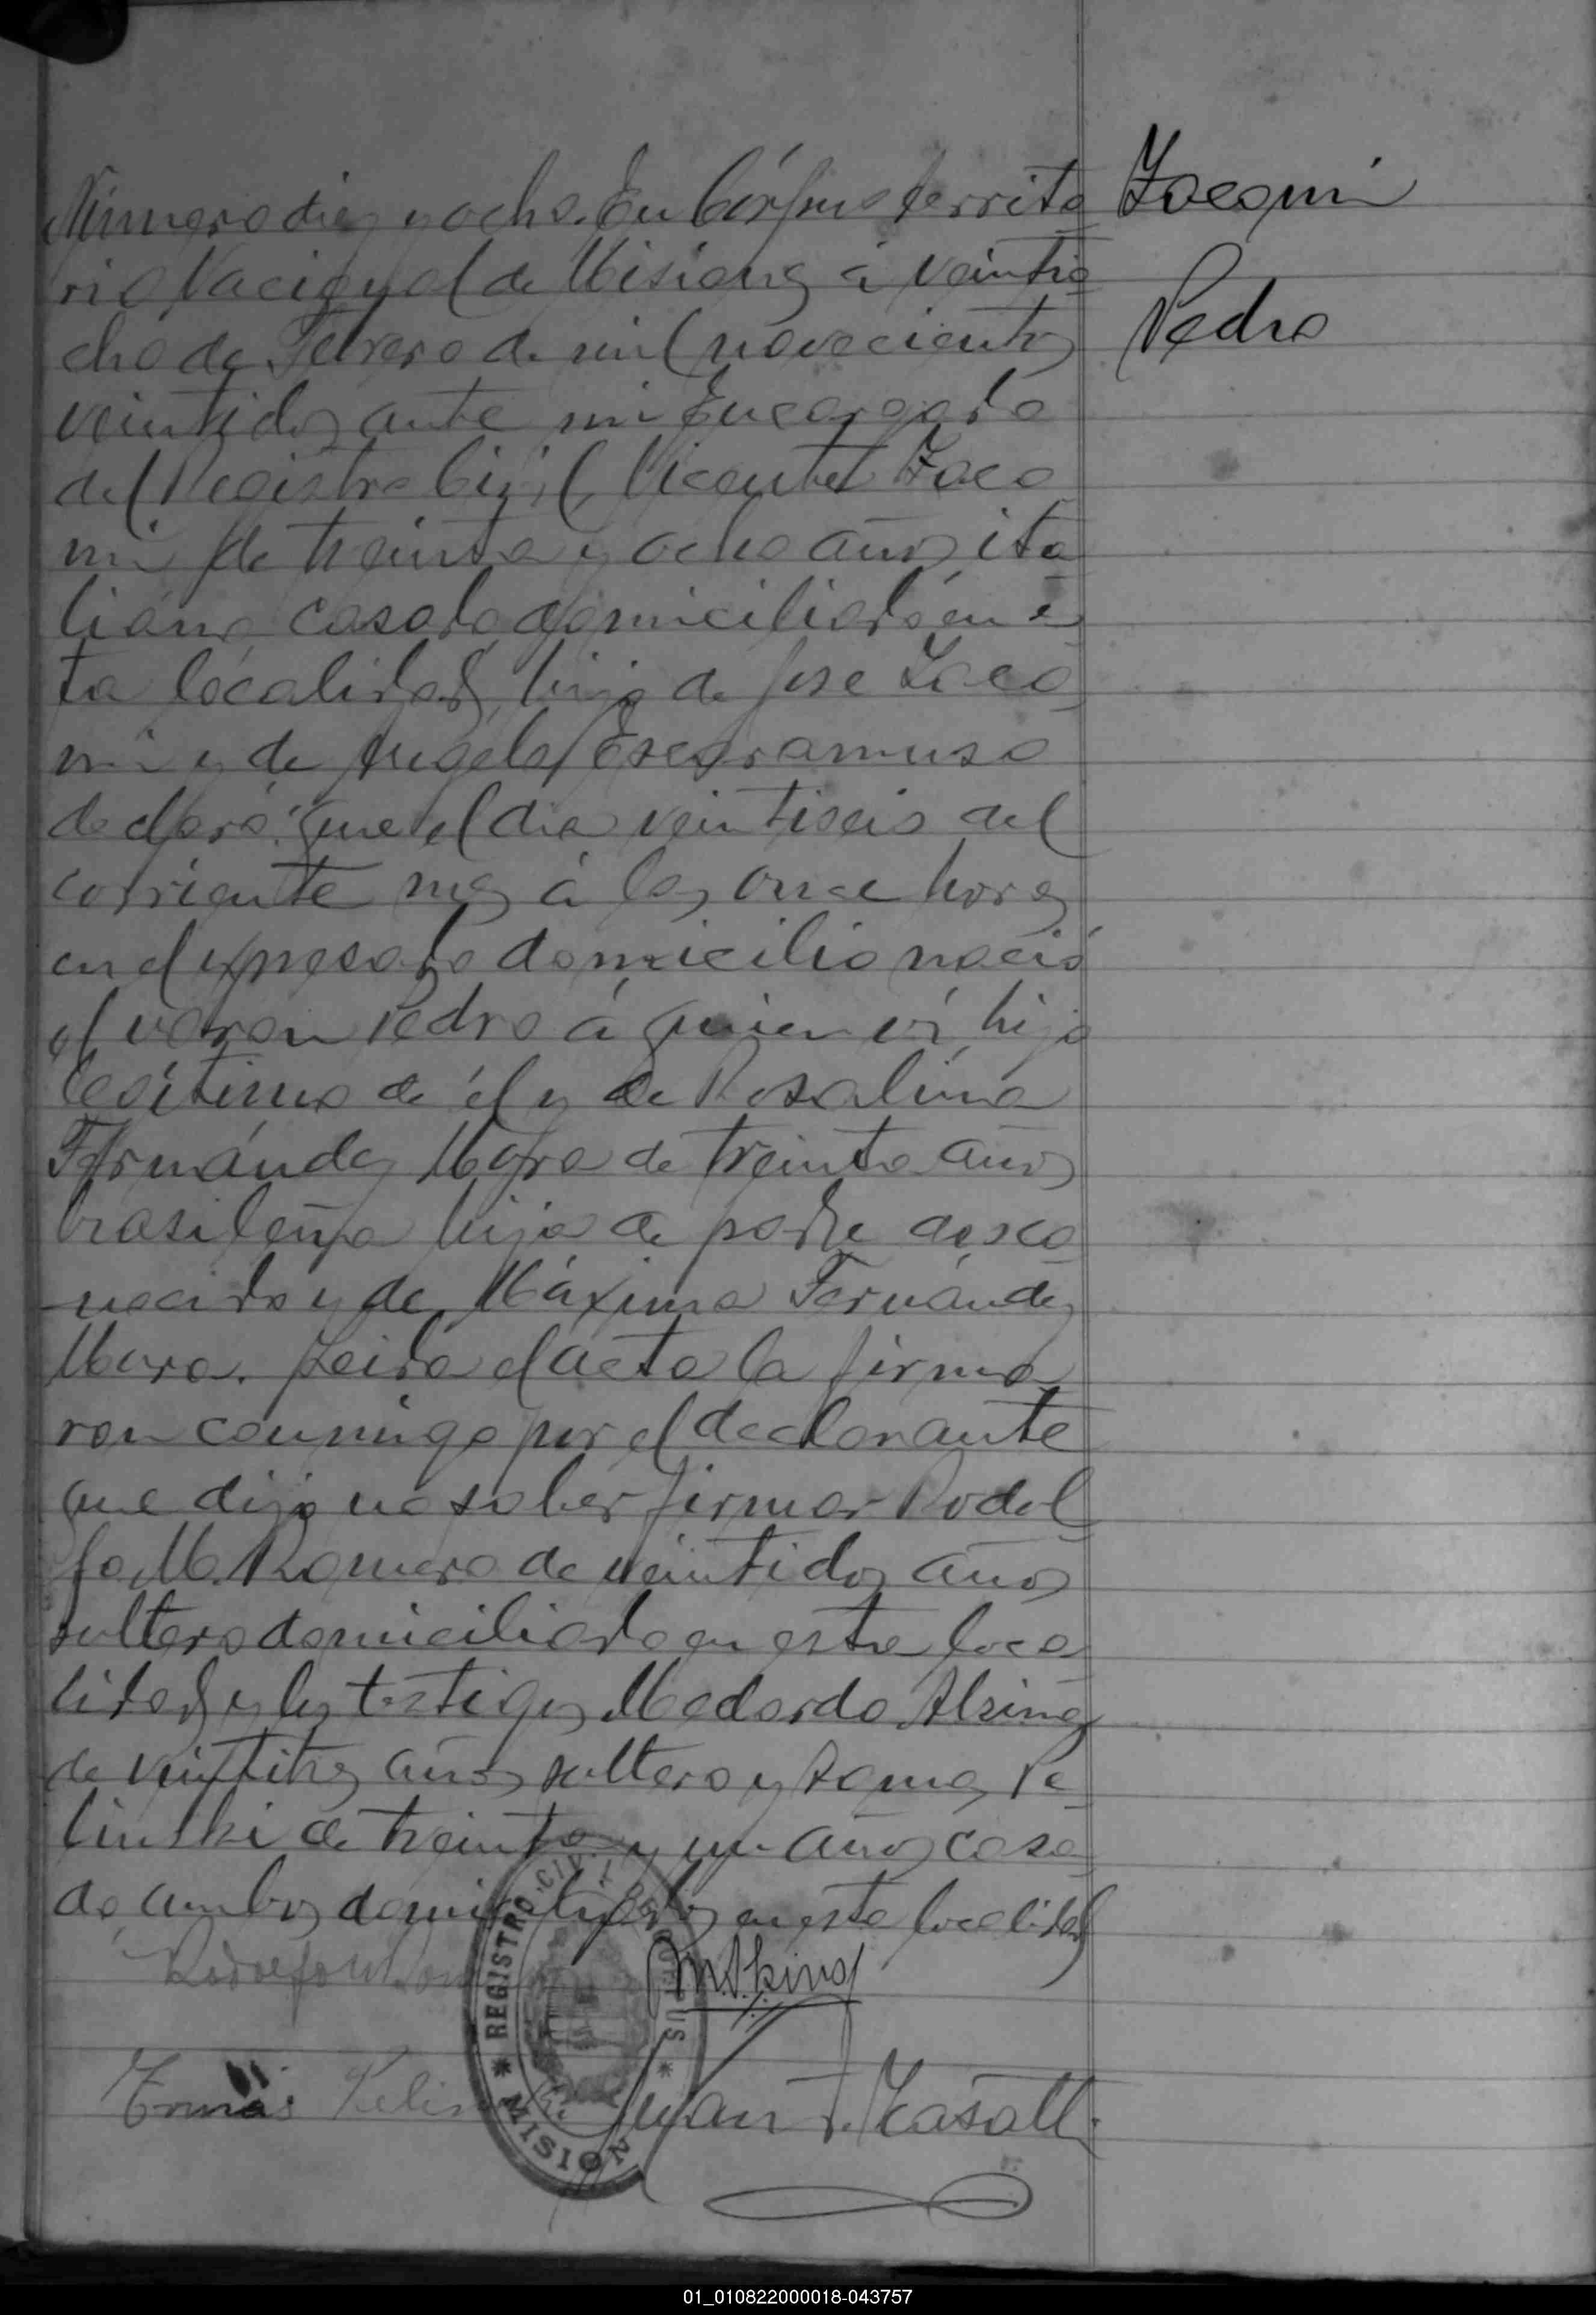 Zacomi
Pedro
Número diez y ocho. En Córpus territo
rio Nacional de Misiones á veintio
cho de Febrero de mil novecientos
veintidos ante mi Encargado
del Registro Civil, Vicente Zaco
mi de treinta y ocho años ita
liano, casado domiciliado en es
ta localidad, hijo de Jose Zaco
mi y de Angela Escaramuso
declaró: que el dia veintiseis del
corriente mes á las once horas
en el expresado domicilio nació
el varon Pedro á quien ví, hijo
legítimo de él y de Rosalina
Fernández Mora de treinta años
brasileña hija de padre desco
nocido y de Máxima Fernández
Mora. Leida el acta la firma
ron conmigo por el declarante
que dijo no saber firmar Rodol
fo M. Romero de veintidos años
soltero domiciliado en esta loca
lidad y los testigos Medardo Alsina
de veintitres años soltero y Tomas Pe
linski de treinta y un años casa
do, ambos domiciliados en esta localidad
Rodolfo M. Rom
Tomás Pelinski
Juan J. Casatti
REGISTRO CIVIL DE CORPUS
* MISIONES *
01_010822000018-043757